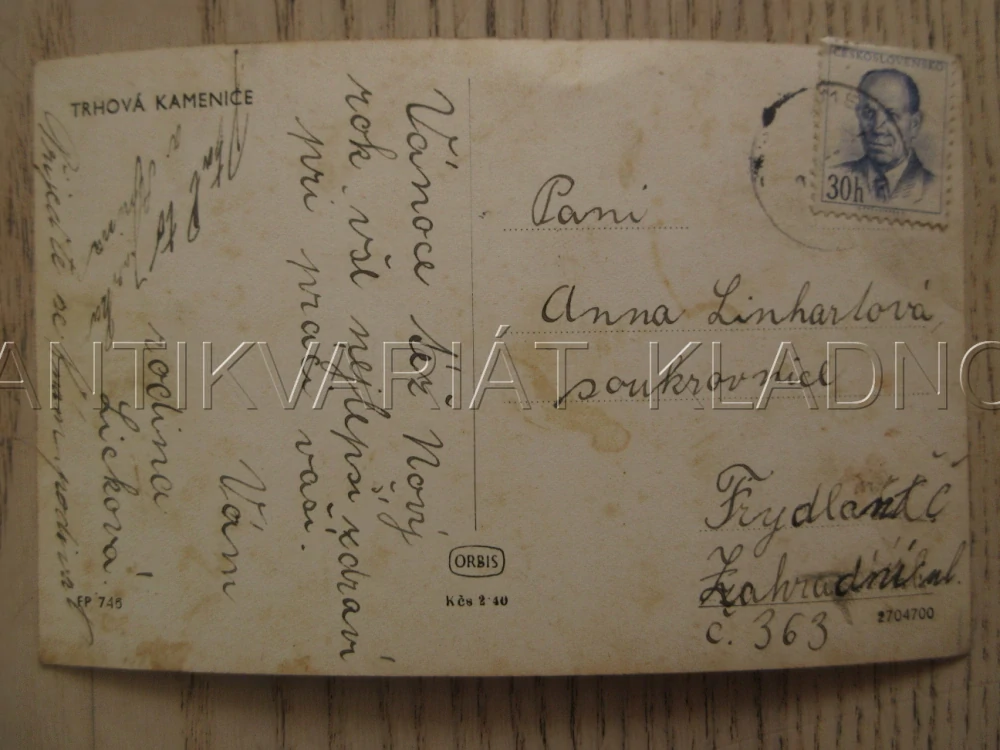 TRHOVÁ KAMENICE
Vánoce též Nový
rok vše nejlepši zdraví
při praci vaší.
Vám
rodina
Ličková.
ORBIS
Kčs 2·40
FP 746
ČESKOSLOVENSKO
30h
Pani
Anna Linhartová
soukrovnice
Frydlant Č
Zahradní ul.
č. 363
2704700
ANTIKVARIÁT KLADNO